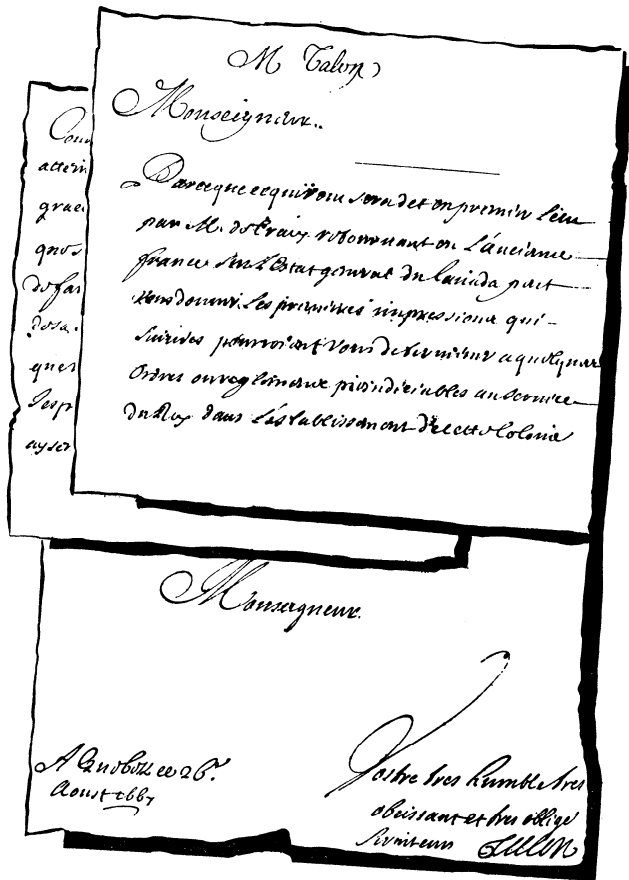 M Talon
Monseigneur..
Parceque ce qui vous sera det en premier lieu
par M. de Tracy retournant en L'anciane
france sur L'Estat general du Canada peut
vous donner les premieres impressions qui
suivies pourroient vous determiner a quelques
Ordres ou reglemans prejudiciables au service
du Roy dans L'establissement de cette Colonie
Monseigneur.
A Quebec ce 26.
Aoust 1667
Vostre tres humble tres
obeissant et tres oblige
serviteur Talon